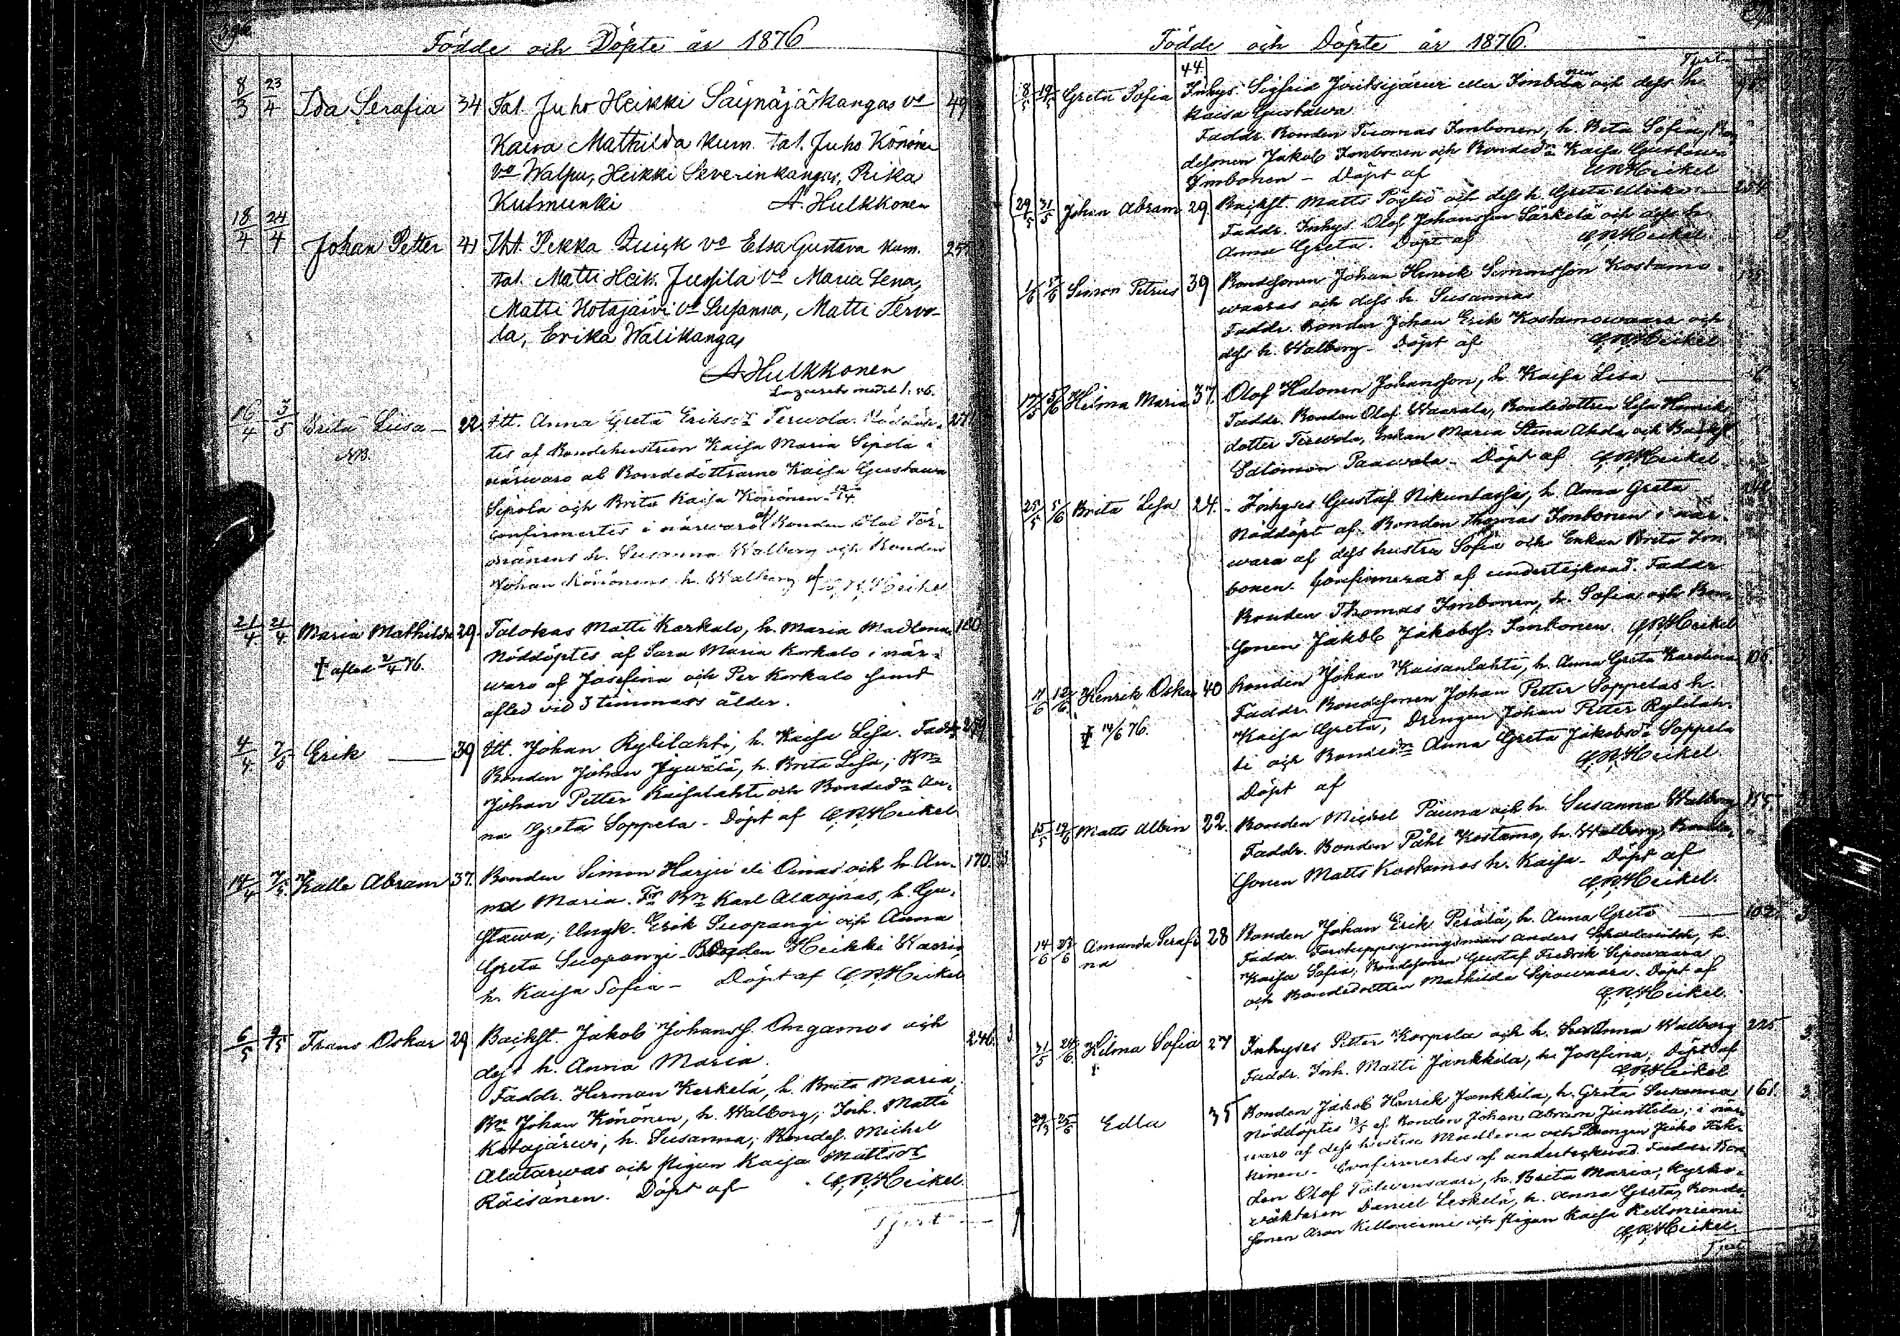 Födde och Döpte år 1876
8/3 23/4 Ida Serafia 34 Tal. Juho Heikki Säynäjäkangas vo 49
Kaisa Mathilda kum. tal. Juho Könönen
vo Walpu, Heikki Severinkangas, Rika
Kulmunki A. Hulkkonen
18/4 24/4 Johan Petter 41 Itt. Pekka vo Elsa Gustava kum. 255
tal. Matti Heik. Jussila vo Maria Lena,
Matti Kotajärvi vo Susanna, Matti Tervo-
la, Erika Wälikangas
A Hulkkonen
16/4 3/5 Brita Liisa 22 Itt. Anna Greta Eriksdr Terwola. Nöddöp- 271
NB. tes af Bondehustrun Kaisa Maria Sipola i
närwaro af Bondedöttrarne Kaisa Gustawa
Sipola och Brita Kaisa Könönen
Confirmertes i närwaro af Bonden Olof Tör-
mänens h. Susanna Walborg och Bonden
Johan Könönens h. Walborg af C.R. Heikel
21/4 21/4 Maria Mathilda 29. Talokas Matti Karkalo, h. Maria Madlena 180
† afled 21/4 76. Nöddöptes af Sara Maria Korkalo i när-
waro af Josefina och Per Korkalo samt
afled vid 3 timmars ålder.
4/4 7/5 Erik 39 Itt. Johan Rytilahti, h. Kaisa Lisa. Faddr. 279
Bonden Johan Jywälä, h. Brita Lisa; Bn
Johan Petter Kaisalahti och Bondedn An-
na Greta Soppela - Döpt af C.R. Heikel
14/4 7/5 Kalle Abram 37. Bonden Simon Harju eli Oinas och h. An- 170.
na Maria. Fr Bn Karl Alaojnas, h. Gu-
stawa; Ungk. Erik Suopangi och Anna
Greta Suopangi Bonden Heikki Waarin
h. Kaisa Sofia - Döpt af C.R. Heikel
6/5 9/5 Frans Oskar 29 Backst. Jakob Johanss. Angamos och 246.
dess h. Anna Maria.
Faddr. Herman Kerkelä, h. Brita Maria,
Bn Johan Könönen, h. Walborg; Inh. Matti
Kotajärwi, h. Susanna; Bondes. Michel
Alatarwas och pigan Kaisa Mattsdr
Räisänen. Döpt af C.R. Heikel
Tjert
Födde och Döpte år 1876.
44.
8/5 Greta Sofia Inhys. Sigfrid eller Imbonen och dess h.
Kaisa Gustawa
Faddr. Bonden Thomas Imbonen, h. Brita Sofia, Bon-
desonen Jakob Imbonen och Bondedn Kaisa Gustawa
Imbonen - Döpt af C.R. Heikel
29/5 31/5 Johan Abram 29. Backst. Matts och dess h. Greta Ulrika 254
Faddr. Inhys. Olof Johansson Särkelä och dess h.
Anna Greta. Döpt af C.R. Heikel
1/6 Simon Petrus 39 Bondesonen Johan Henrik Simonsson Kostamo-
waaras och dess h. Susannas
Faddr. Bonden Johan Erik Kostamowaara och
dess h. Walborg. Döpt af C.R. Heikel
Hilma Maria 37. Olof Halonen Johansson, h. Kaisa Lisa
Faddr. Bonden Olof Waarala, Bondedottren Lisa Henriks-
dotter Terwola, Enkan Maria Stina Ahola och Backst
Salomon Paawola - Döpt af C.R. Heikel
25/5 5/6 Brita Lisa 24. Inhyses Gustaf, h. Anna Greta
Nöddöpt af Bonden Thomas Imbonen i när-
waro af dess hustru Sofia och Enkan Brita Im-
bonen. Confirmerad af undertecknad. Faddr
Bonden Thomas Imbonen, h. Sofia och Bon-
sonen Jakob Jakobss. Imbonen. C.R. Heikel
11/6 12/6 Henrik Oskar 40 Bonden Johan Kaisanlahti, h. Anna Greta Kardina 105
† 14/6 76. Faddr. Bondesonen Johan Petter Soppelas h.
Kaisa Greta, Drengen Johan Petter Rytilah-
ti och Bondedn Anna Greta Jakobsdr Soppela
Döpt af C.R. Heikel
15/5 18/6 Matts Albin 22. Bonden Michel Pauna och h. Susanna Walborg 115
Faddr. Bonden Påhl Kostamo, h. Walborg, Bonde-
sonen Matts Kostamos h. Kaisa - Döpt af
C.R. Heikel
14/6 Amanda Serafi- 28 Bonden Johan Erik Perälä, h. Anna Greta 102.
na Faddr. Anders, h.
Kaisa Sofia, Bondesonen Gustaf Fredrik Sipowaara
och Bondedottren Mathilda Sipowaara. Döpt af
C.R. Heikel
31/5 24/6 Hilma Sofia 27 Inhyses Petter Korpela och h. Susanna Walborg 225
Faddr. Inh. Matti Jankkila, h. Josefina. Döpt af
C.R. Heikel
29/3 25/6 Edla 35 Bonden Jakob Henrik Jankkila, h. Greta Susanna 161.
Nöddöptes af Bonden Johan Abram Junttila, i när-
waro af dess hustru Madlena och Drengen Juho
Confirmertes af undertecknad. Faddr. Bon-
den Olof, h. Brita Maria, Kyrko-
wäktaren Daniel Leskelä, h. Anna Greta, Bonde-
sonen Aron Kelloniemi och pigan Kaisa Kelloniemi
C.R. Heikel